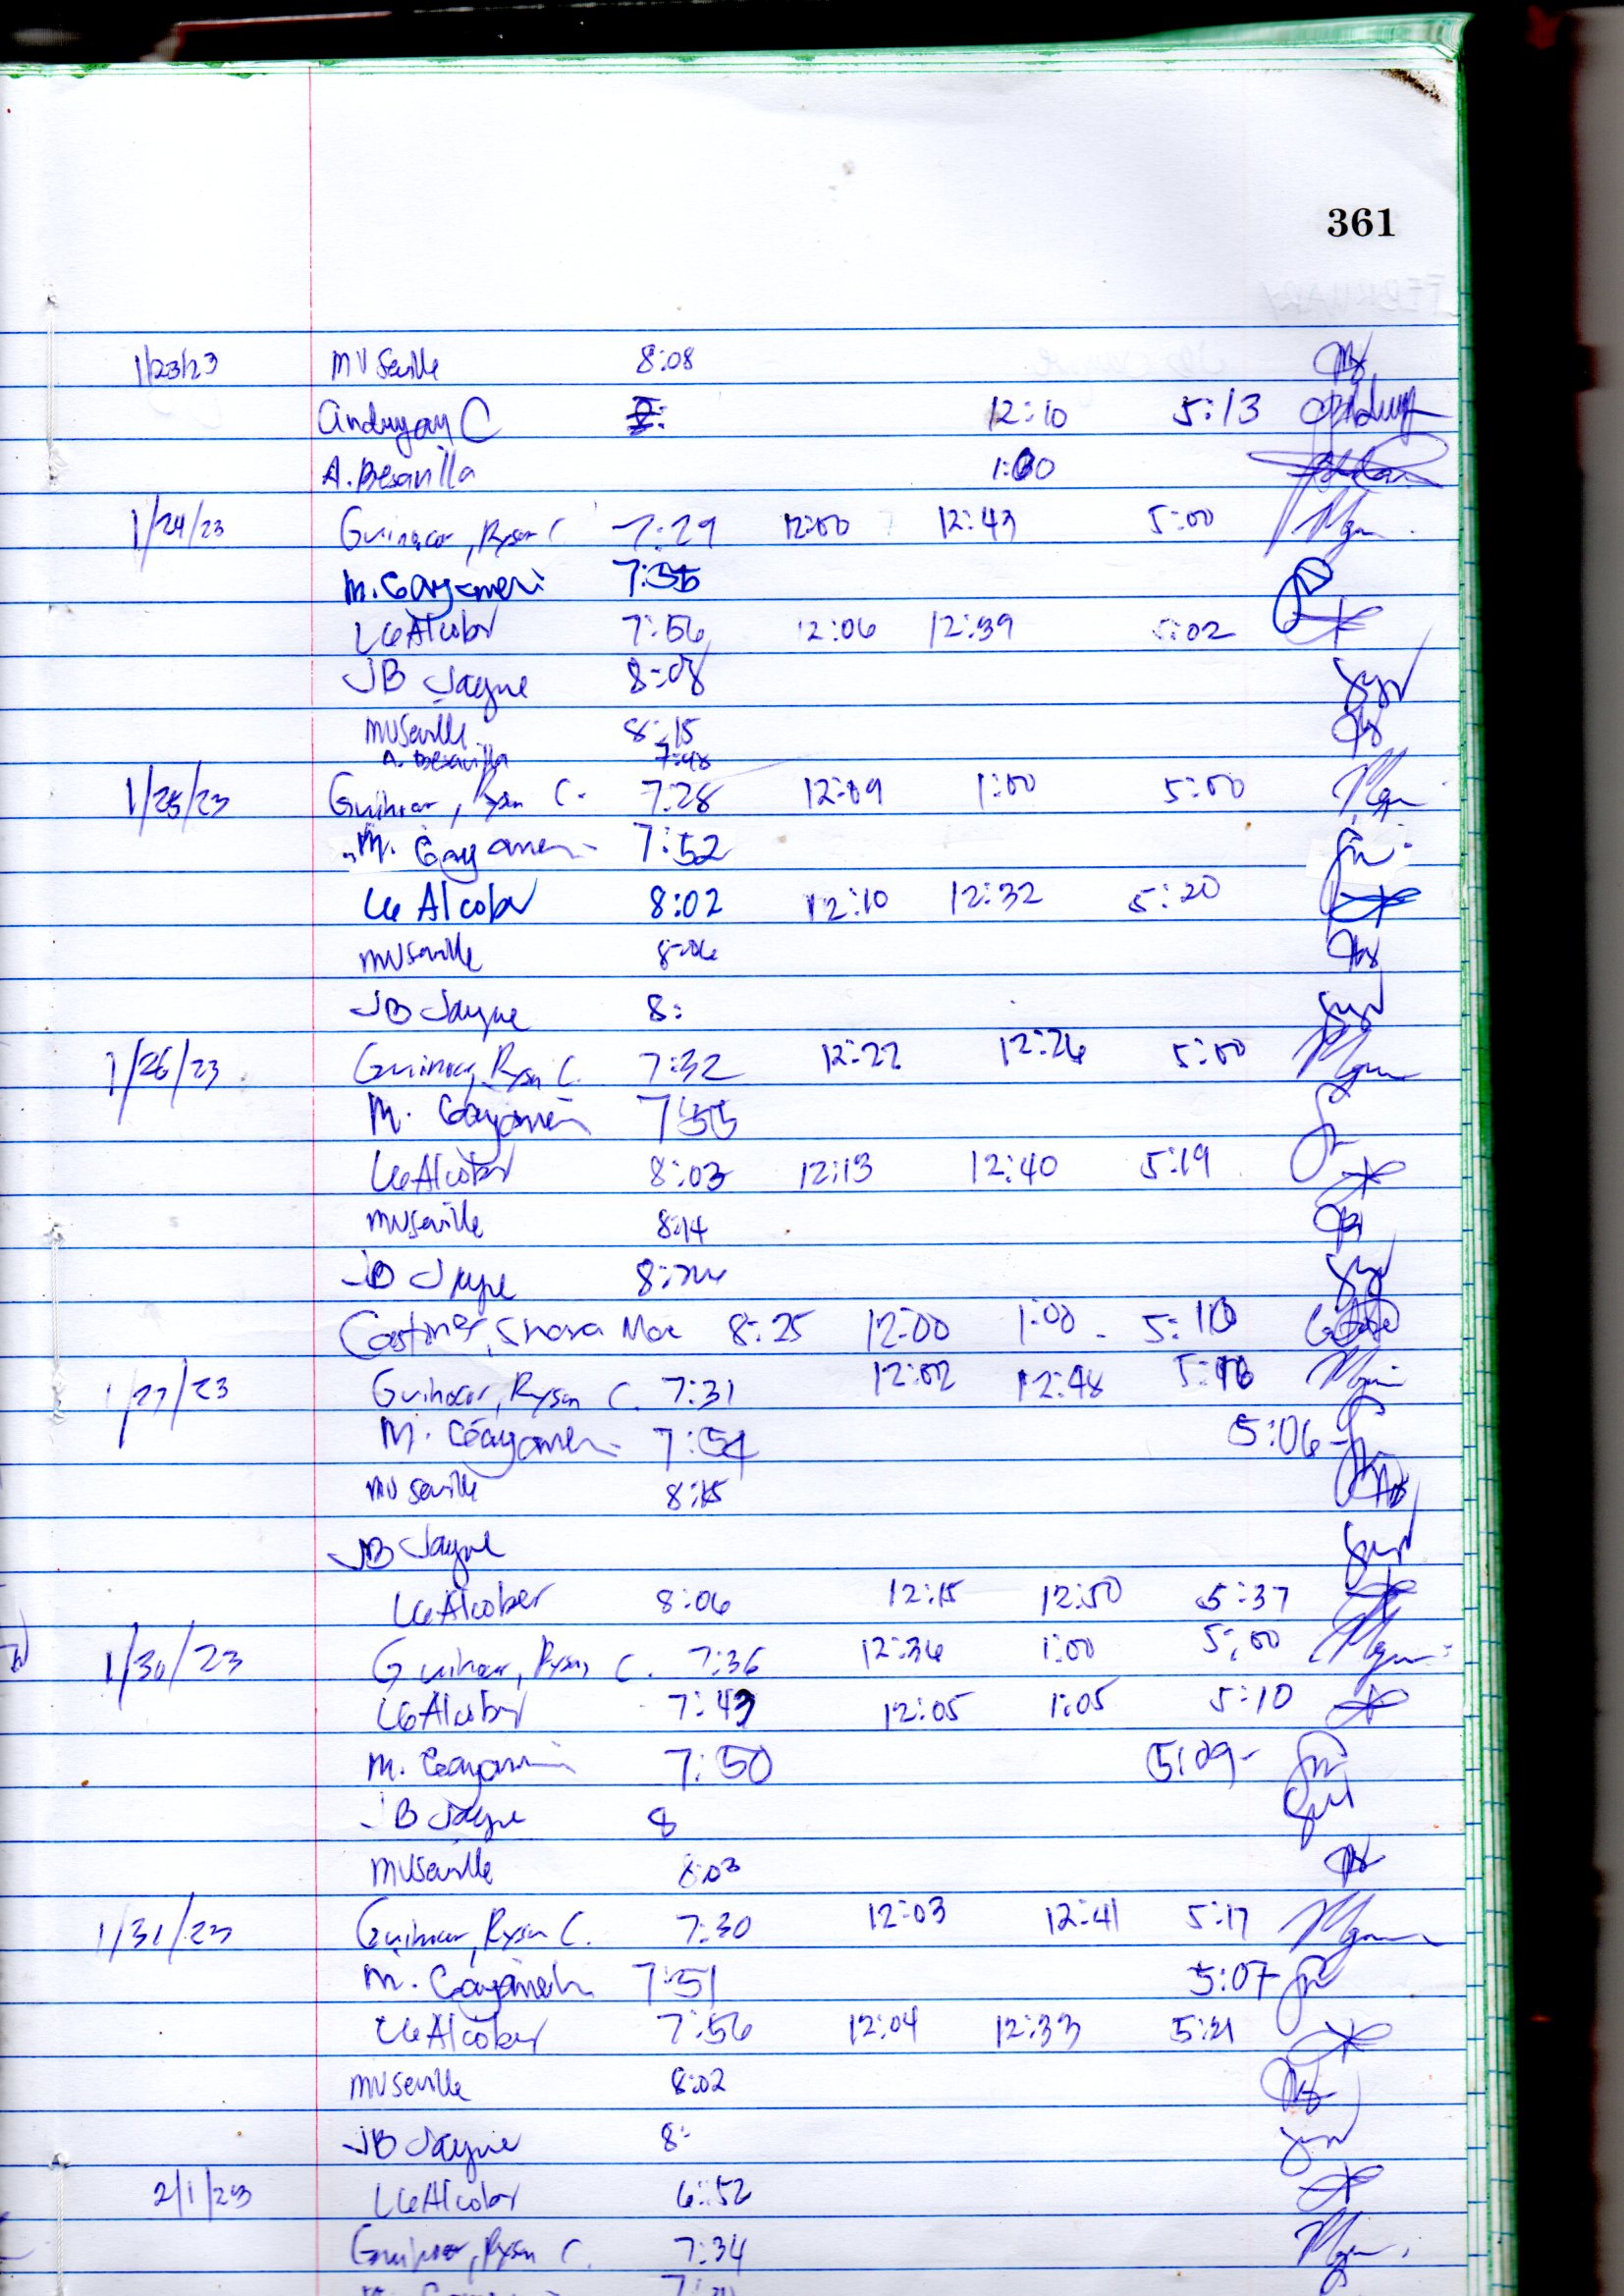 361
1/23/23 MV Seville 8:08
Anduyan C 12:10 5:13
A. Besavilla 1:00
1/24/23 Guinocor, Ryson C. 7:29 12:00 12:43 5:00
M. Cayamen 7:35
LG Alcober 7:56 12:06 12:39 5:02
JB Jayne 8:08
MV Seville 8:15
A. Besavilla 7:48
1/25/23 Guinocor, Ryson C. 7:28 12:09 1:00 5:00
M. Cayamen 7:52
LG Alcober 8:02 12:10 12:32 5:20
MV Seville 8:06
JB Jayne 8:
1/26/23 Guinocor, Ryson C. 7:32 12:22 12:26 5:00
M. Cayamen 7:55
LG Alcober 8:03 12:13 12:40 5:19
MV Seville 8:14
JB Jayne
Castines, Shara Mae 8:25 12:00 1:00 5:10
1/27/23 Guinocor, Ryson C. 7:31 12:02 12:48
M. Cayamen 7:54 5:06
MV Seville 8:15
JB Jayne
LG Alcober 8:06 12:15 12:50 5:37
1/30/23 Guinocor, Ryson C. 7:36 12:36 1:00 5:00
LG Alcober 7:49 12:05 1:05 5:10
M. Cayamen 7:50 5:09
JB Jayne 8
MV Seville 8:03
1/31/23 Guinocor, Ryson C. 7:30 12:03 12:41 5:17
M. Cayamen 7:51 5:07
LG Alcober 7:56 12:04 12:33 5:21
MV Seville 8:02
JB Jayne 8:
2/1/23 LG Alcober 6:52
Guinocor, Ryson C. 7:34